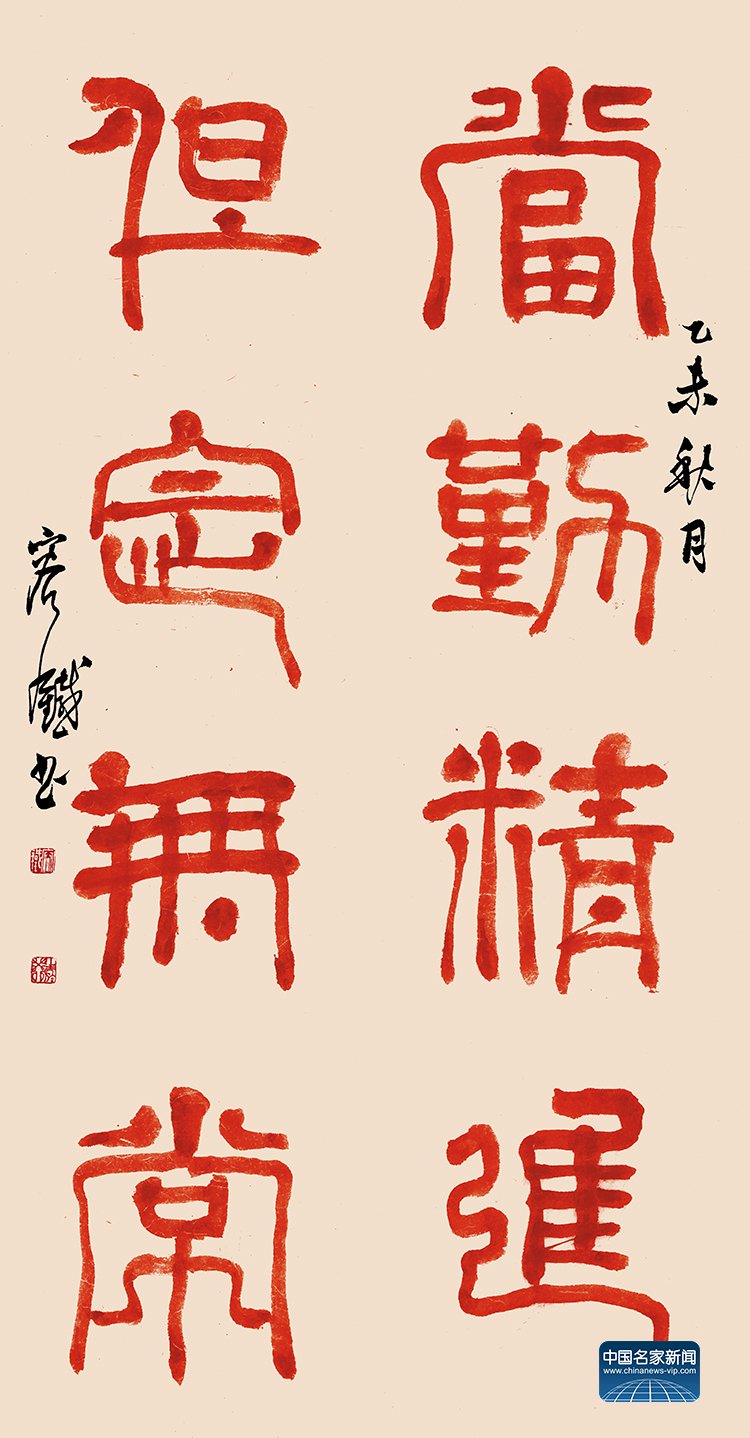 當勤精進
但定無常
乙未秋月
中国名家新闻
www.chinanews-vip.com